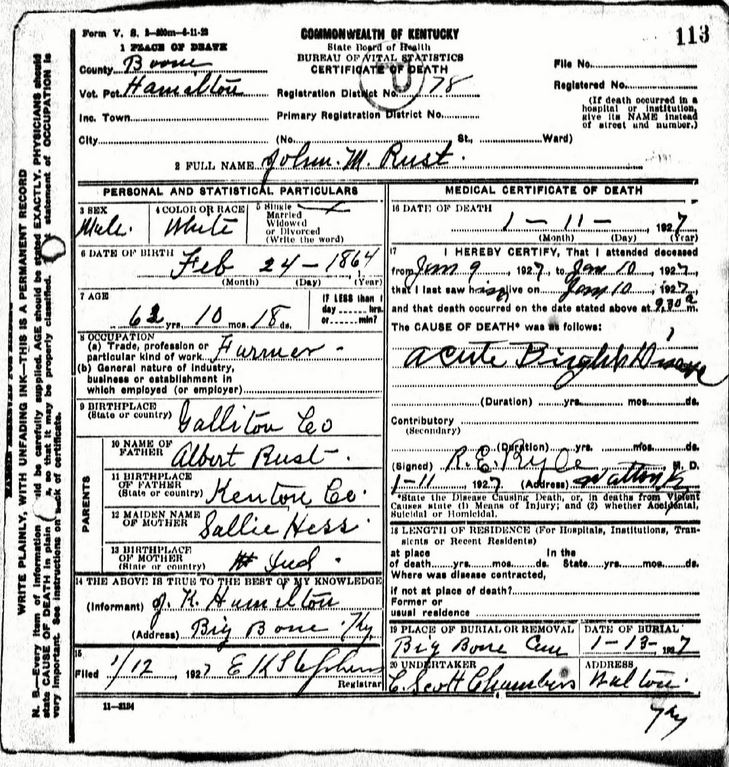 113
Form V. S.
COMMONWEALTH OF KENTUCKY
State Board of Health
BUREAU OF VITAL STATISTICS
CERTIFICATE OF DEATH
1 PLACE OF DEATH
County Boone
Vot. Pct. Hamilton
Inc. Town
City
Registration District No. 78
Primary Registration District No.
(No. St., Ward)
File No.
Registered No.
(If death occurred in a
hospital or institution,
give its NAME instead
of street and number.)
2 FULL NAME John. M. Rust.
PERSONAL AND STATISTICAL PARTICULARS
3 SEX
Male.
4 COLOR OR RACE
White
5 Single
Married
Widowed
or Divorced
(Write the word)
6 DATE OF BIRTH Feb 24-1864
(Month) (Day) (Year)
7 AGE
62 yrs. 10 mos. 18 ds.
IF LESS than 1
day ...... hrs.
or ...... min?
8 OCCUPATION
(a) Trade, profession or
particular kind of work. Farmer-
(b) General nature of industry,
business or establishment in
which employed (or employer)
9 BIRTHPLACE
(State or country) Co
PARENTS
10 NAME OF
FATHER Albert Rust-
11 BIRTHPLACE
OF FATHER
(State or country) Kenton Co.
12 MAIDEN NAME
OF MOTHER Sallie Hess
13 BIRTHPLACE
OF MOTHER
(State or country) Ind
14 THE ABOVE IS TRUE TO THE BEST OF MY KNOWLEDGE
(Informant) J. K. Hamilton
(Address) Big Bone Ky
15
Filed 1/12 1927
Registrar
11-3184
MEDICAL CERTIFICATE OF DEATH
16 DATE OF DEATH
1-11- 1927
(Month) (Day) (Year)
17 I HEREBY CERTIFY, That I attended deceased
from Jan 9 1927, to Jan 10 1927,
that I last saw him alive on Jan 10, 1927
and that death occurred on the date stated above at m.
The CAUSE OF DEATH* was as follows:
Acute Brights Disease
(Duration) yrs. mos. ds.
Contributory
(Secondary)
(Duration) yrs. mos. ds.
(Signed) R. E. Ryle M. D.
1-11 1927 (Address)
*State the Disease Causing Death, or, in deaths from Violent
Causes state (1) Means of Injury; and (2) whether Accidental,
Suicidal or Homicidal.
18 LENGTH OF RESIDENCE (For Hospitals, Institutions, Tran-
sients or Recent Residents)
at place In the
of death yrs. mos. ds. State yrs. mos. ds.
Where was disease contracted,
if not at place of death?
Former or
usual residence
19 PLACE OF BURIAL OR REMOVAL
Big Bone Cem
DATE OF BURIAL
1-13-1927
20 UNDERTAKER
C. Scott Chambers
ADDRESS
Walton.
Ky
WRITE PLAINLY, WITH UNFADING INK—THIS IS A PERMANENT RECORD